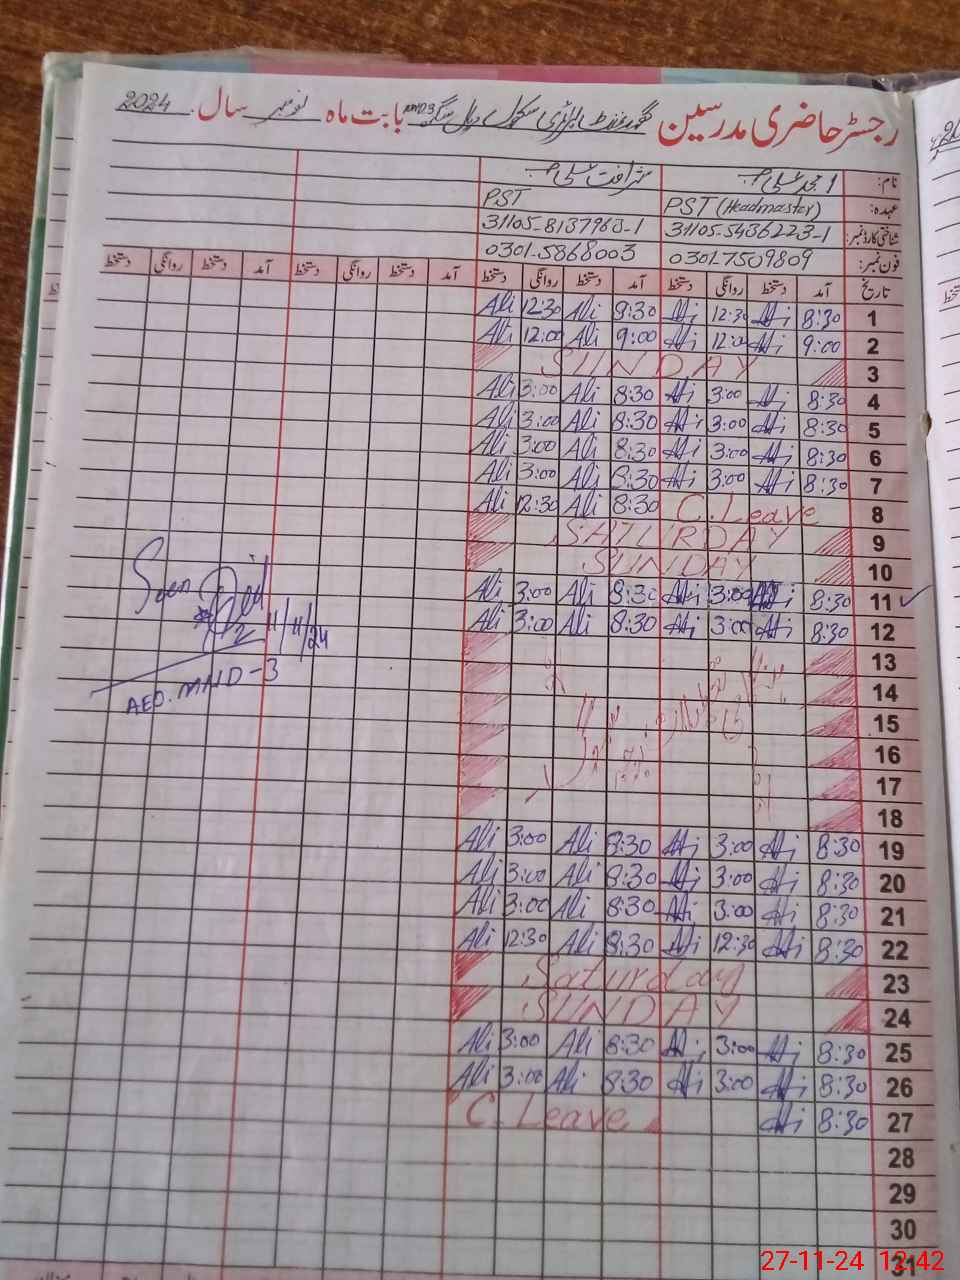 رجسٹر حاضری مدرسین گورنمنٹ پرائمری سکول بابت ماہ نومبر سال 2024
نام: 1
عہدہ: PST (Headmaster) PST
شناختی کارڈ نمبر: 31105-5436223-1 31105-8137963-1
فون نمبر: 0301-7509809 0301-5868003
تاریخ آمد دستخط روانگی دستخط آمد دستخط روانگی دستخط آمد دستخط روانگی دستخط آمد دستخط روانگی دستخط
1 8:30 Ali 12:30 Ali 8:30 Ali 12:30 Ali
2 9:00 Ali 12:00 Ali 9:00 Ali 12:00 Ali
3 SUNDAY
4 8:30 Ali 3:00 Ali 8:30 Ali 3:00 Ali
5 8:30 Ali 3:00 Ali 8:30 Ali 3:00 Ali
6 8:30 Ali 3:00 Ali 8:30 Ali 3:00 Ali
7 8:30 Ali 3:00 Ali 8:30 Ali 3:00 Ali
8 C.Leave 8:30 Ali 12:30 Ali
9 SATURDAY
10 SUNDAY
11 8:30 Ali 3:00 Ali 8:30 Ali 3:00 Ali
12 8:30 Ali 3:00 Ali 8:30 Ali 3:00 Ali
11/11/24
AEO. MND-3
13
14
15
16
17
18
19 8:30 Ali 3:00 Ali 8:30 Ali 3:00 Ali
20 8:30 Ali 3:00 Ali 8:30 Ali 3:00 Ali
21 8:30 Ali 3:00 Ali 8:30 Ali 3:00 Ali
22 8:30 Ali 12:30 Ali 8:30 Ali 12:30 Ali
23 Saturday
24 SUNDAY
25 8:30 Ali 3:00 Ali 8:30 Ali 3:00 Ali
26 8:30 Ali 3:00 Ali 8:30 Ali 3:00 Ali
27 8:30 Ali C.Leave
28
29
30
31
27-11-24 12:42